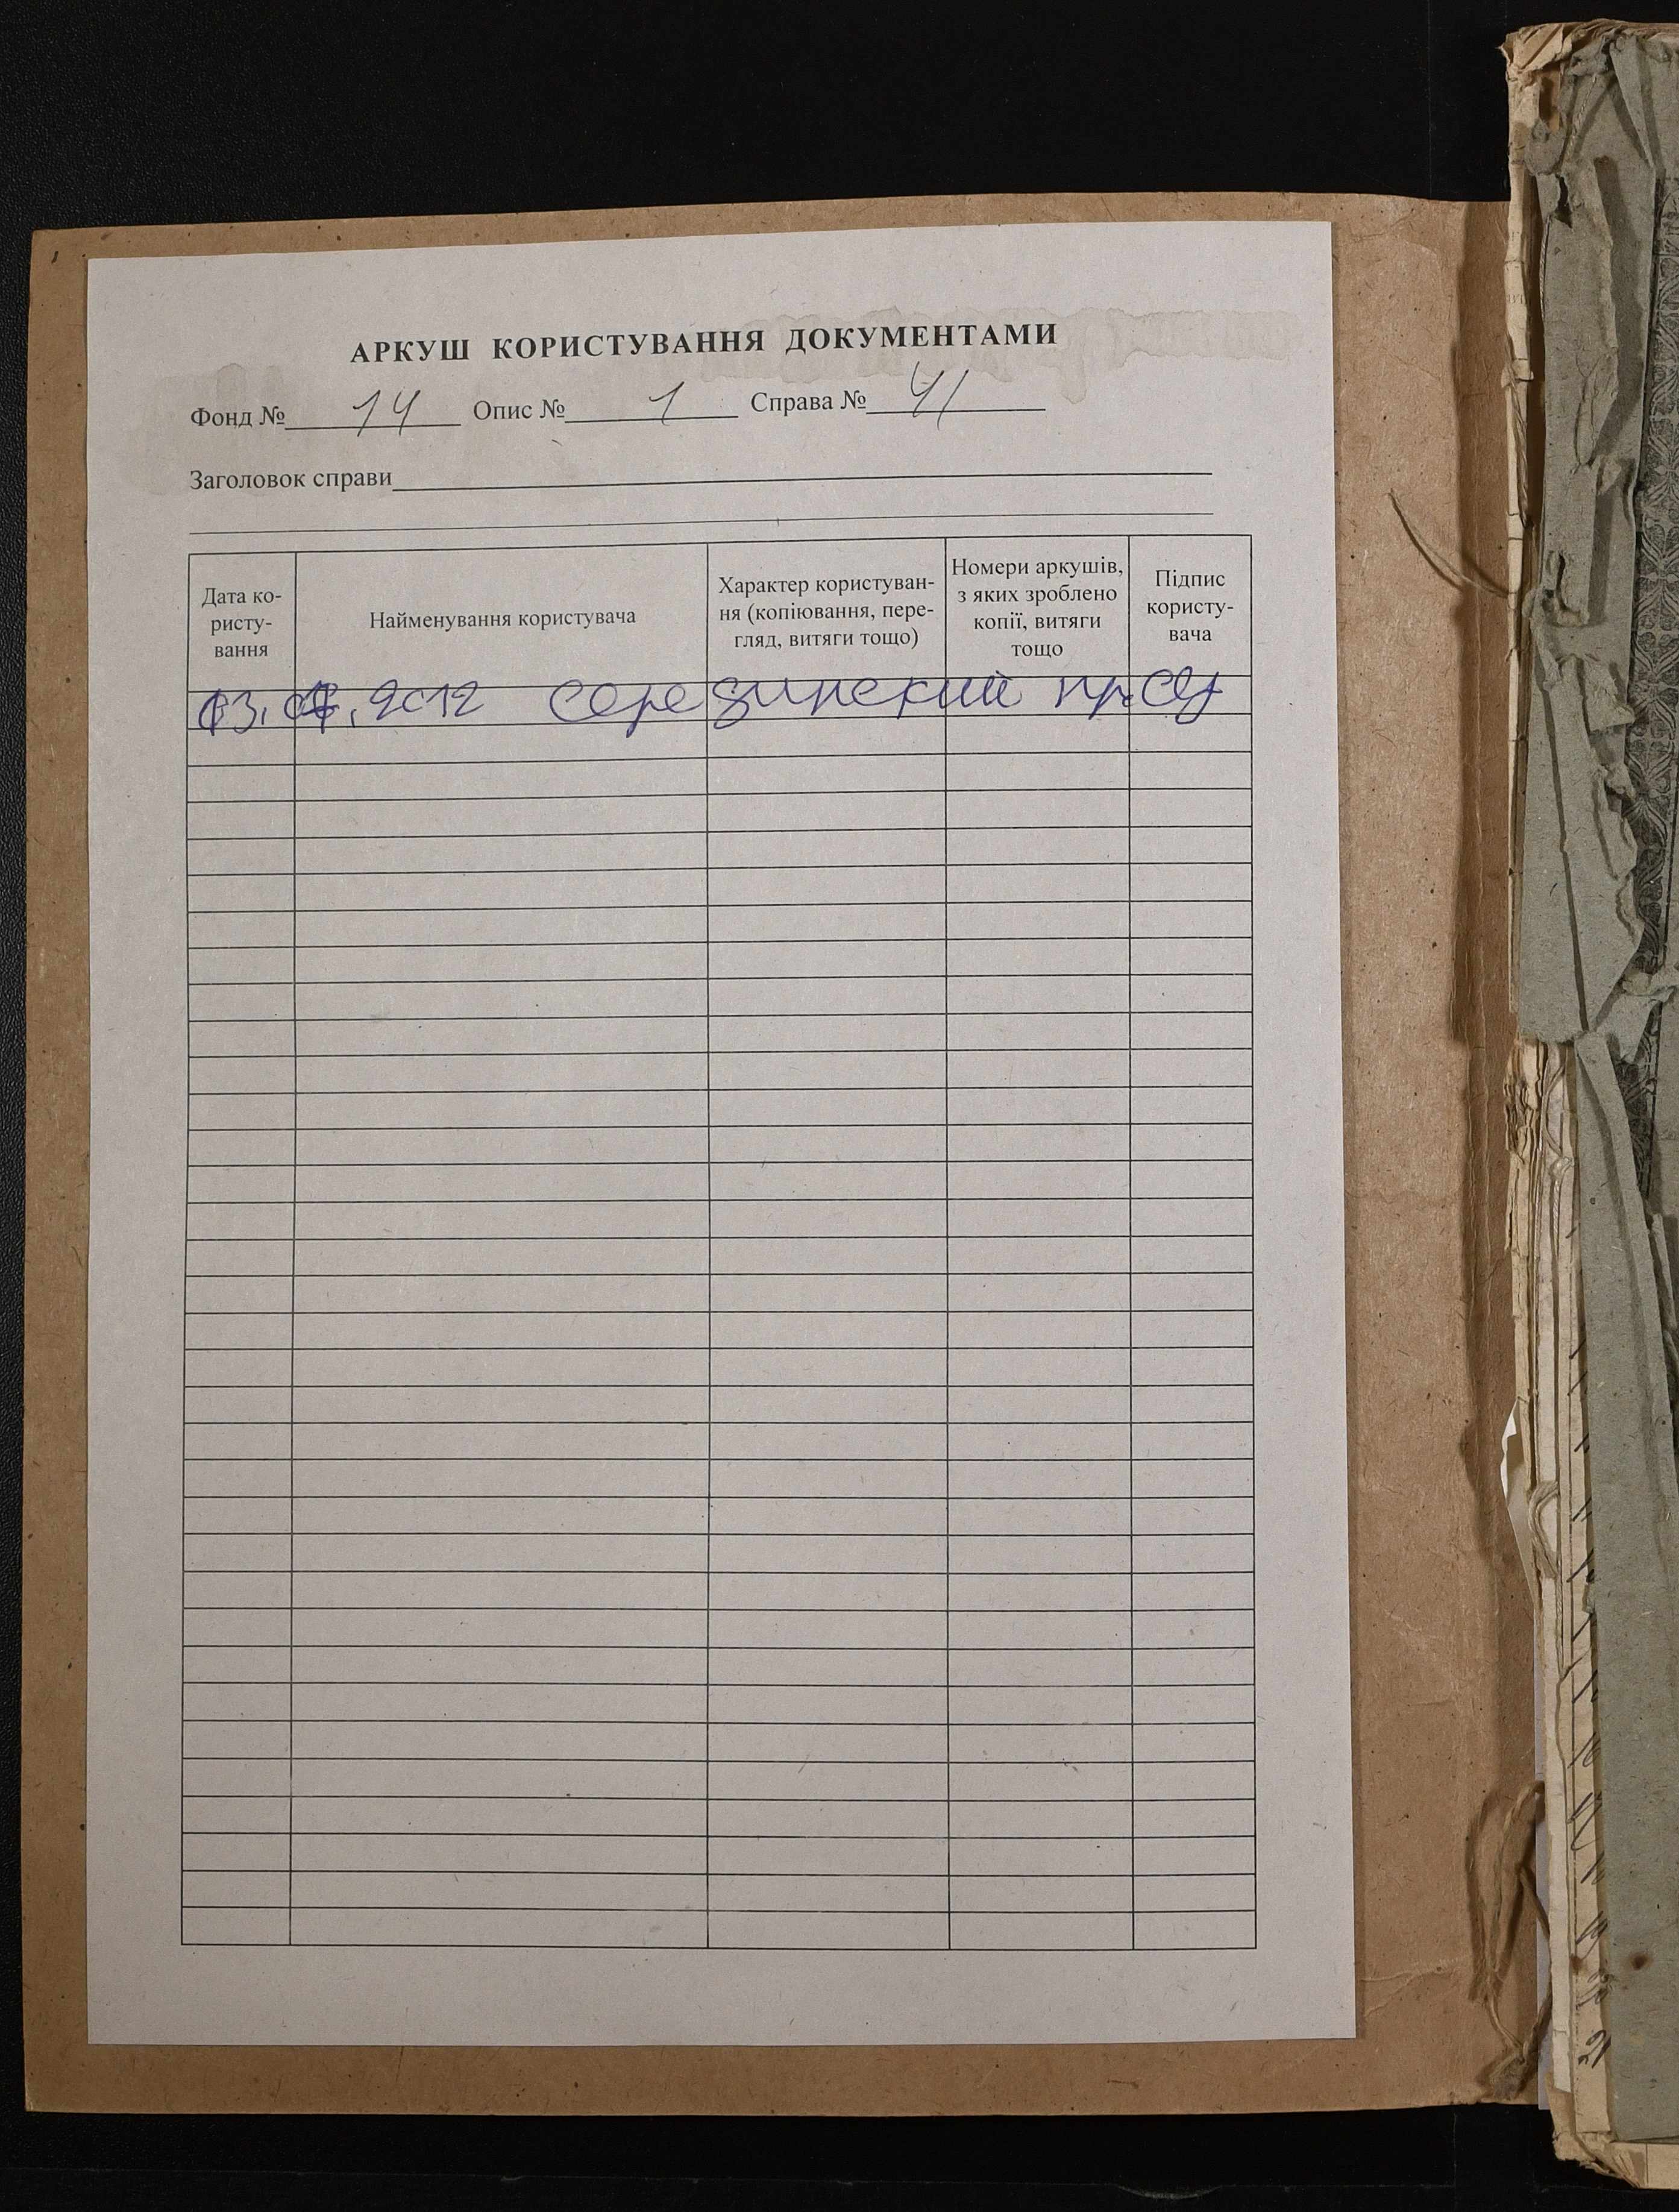 АРКУШ КОРИСТУВАННЯ ДОКУМЕНТАМИ
Фонд № 14 Опис № 1 Справа № 41
Заголовок справи
Дата ко-
ристу-
вання
Найменування користувача
Характер користуван-
ня (копіювання, пере-
гляд, витяги тощо)
Номери аркушів,
з яких зроблено
копії, витяги
тощо
Підпис
користу-
вача
2012 Серединский пр